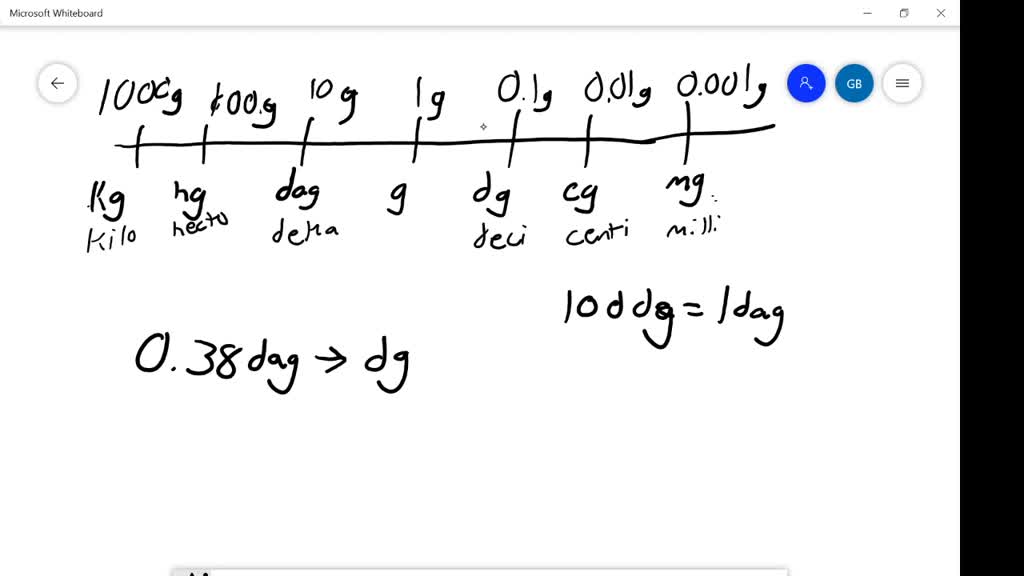 Microsoft Whiteboard
GB
1000g 100g 10g 1g 0.1g 0.01g 0.001g
Kg hg dag g dg cg mg
Kilo hecto deka deci centi milli
100 dg = 1dag
0.38 dag → dg